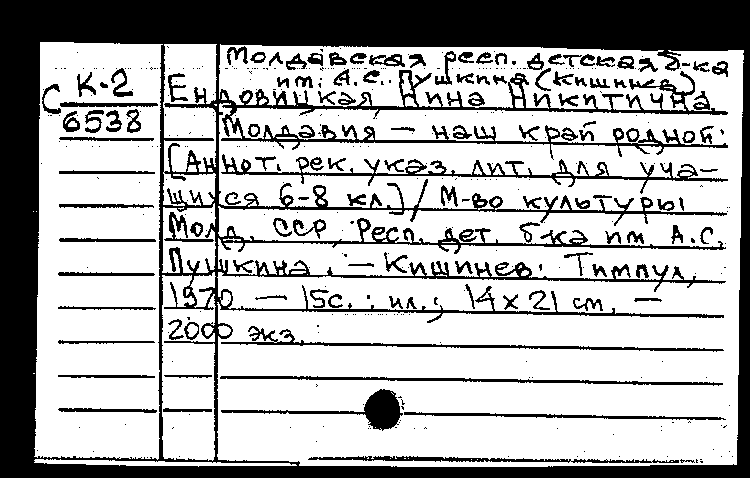 Молдавская респ. детская б-ка
им. А.С. Пушкина (Кишинев)
С К-2
6538
Ендовицкая Нина Никитична.
Молдавия — наш край родной:
[Аннот. рек. указ. лит. для уча-
щихся 6-8 кл.] / М-во культуры
Молд. ССР, Респ. дет. б-ка им. А.С.
Пушкина. — Кишинев: Тимпул,
1970. — 15с.: ил.; 14 х 21 см. —
2000 экз.